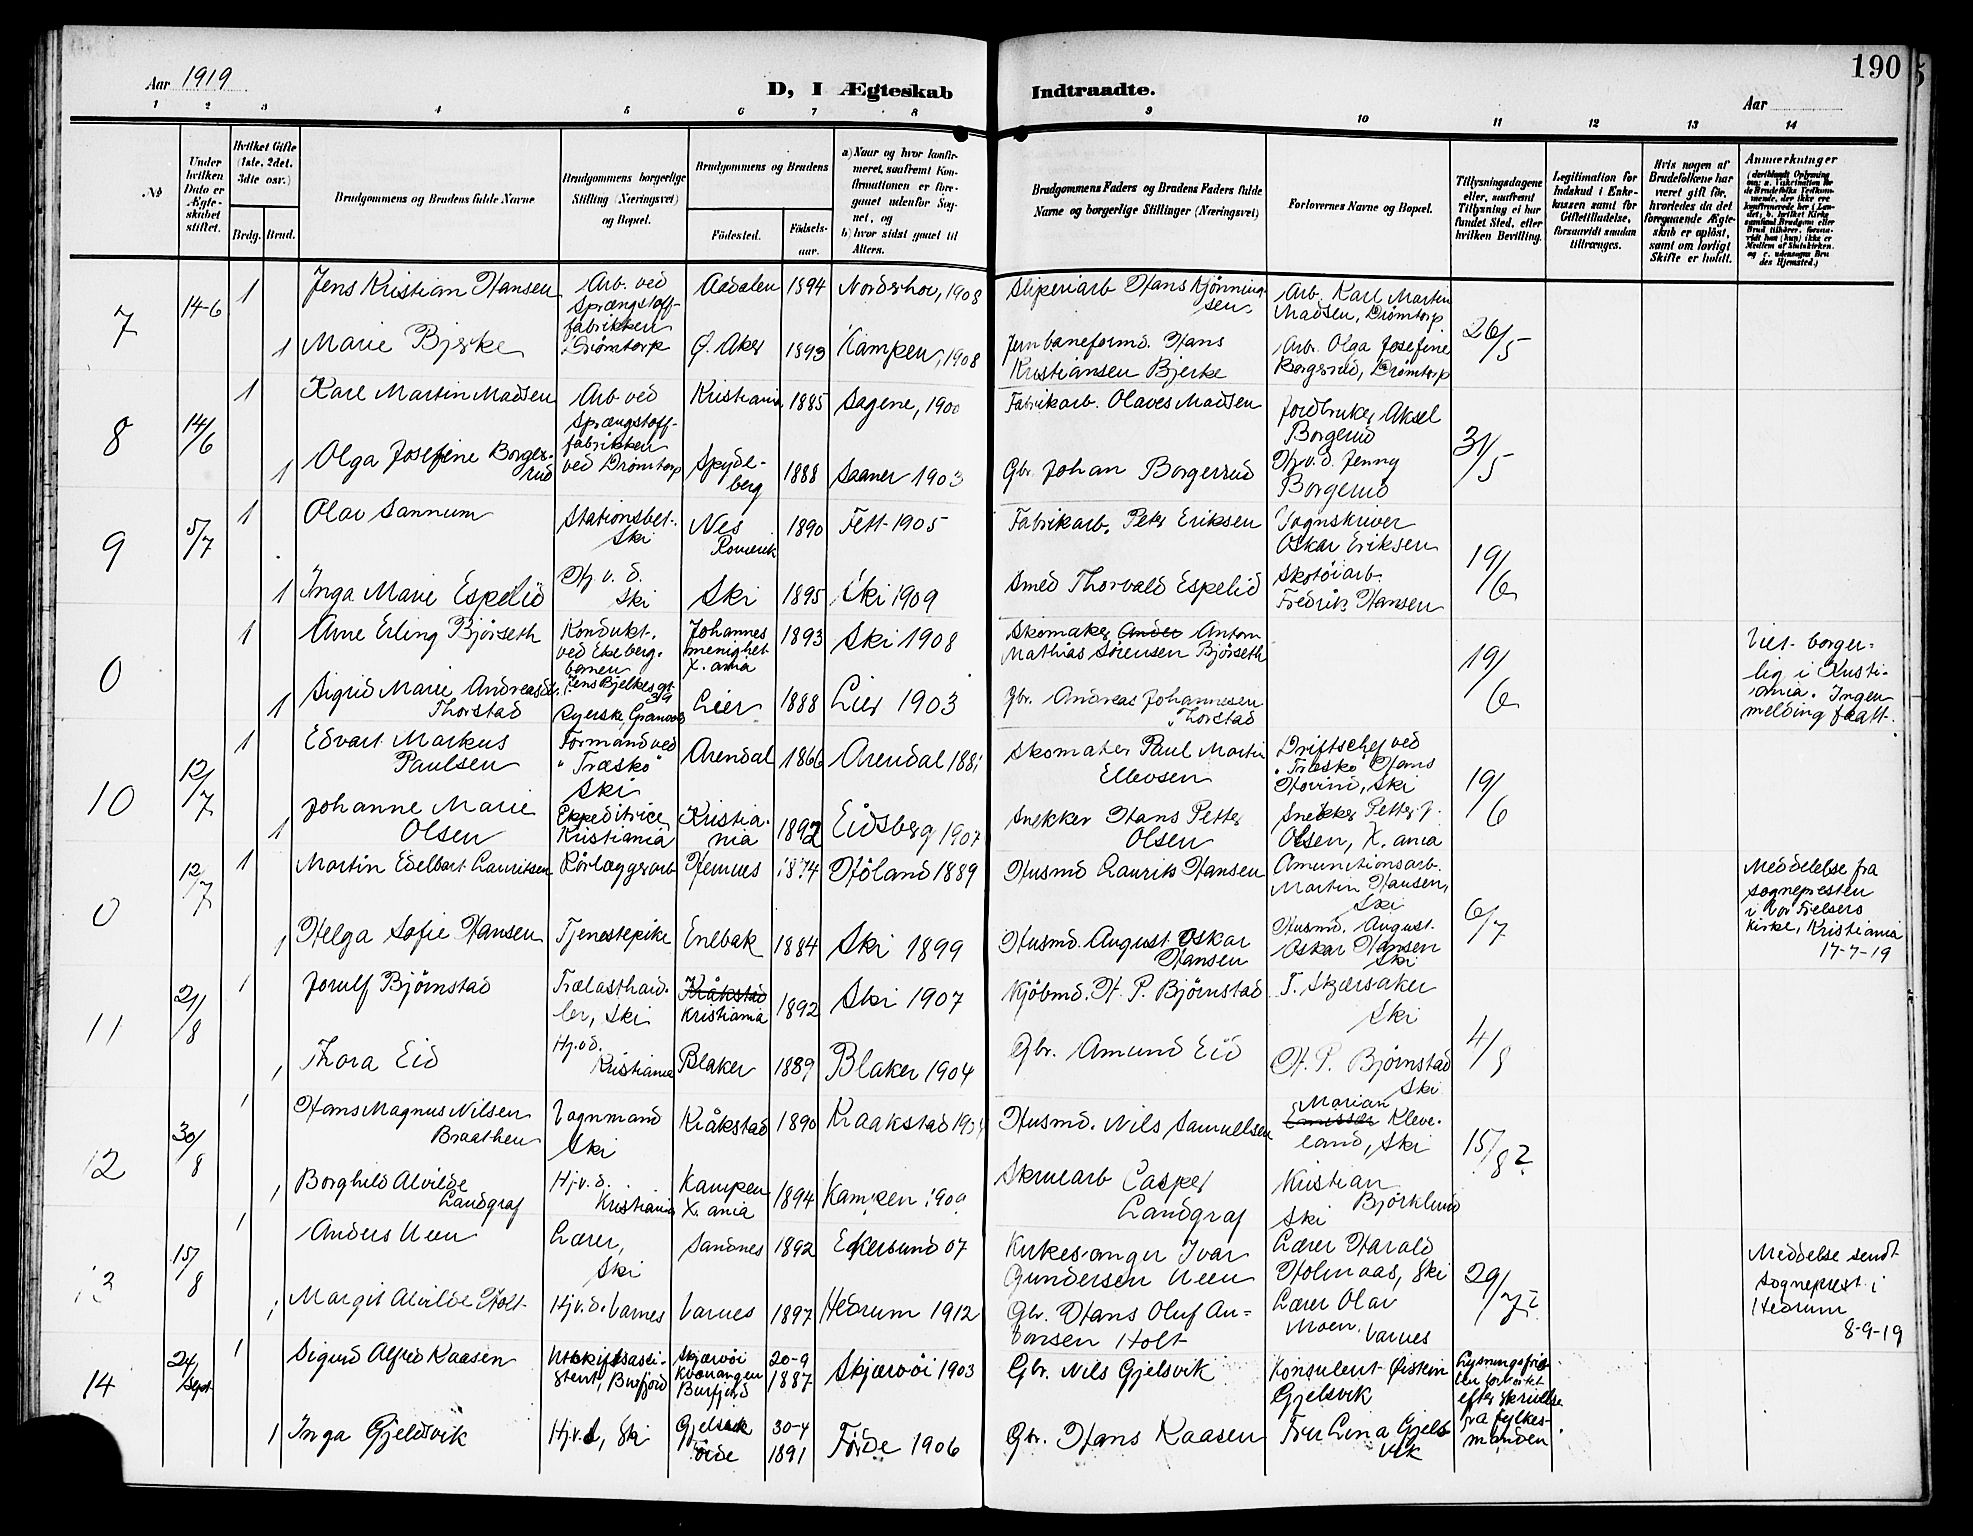 190
Aar 1919
D, I Ægteskab Indtraadte.
Aar
1 2 3 4 5 6 7 8 9 10 11 12 13 14
No
Under hvilken Dato er Ægteskabet stiftet.
Hvilket Gifte (1ste, 2det, 3die osv.)
Brdg. Brud.
Brudgommens og Brudens fulde Navne
Brudgommens borgerlige Stilling (Næringsvei) og Bopæl.
Brudgommens og Brudens
Fødested.
Fødselsaar.
a) Naar og hvor konfirmeret, saafremt Konfirmationen er foregaaet udenfor Sognet, og
b) hvor sidst gaaet til Alters.
Brudgommens Faders og Brudens Faders fulde Navne og borgerlige Stillinger (Næringsvei)
Forlovernes Navne og Bopæl.
Tillysningsdagene eller, saafremt Tillysning ei har fundet Sted, efter hvilken Bevilling.
Legitimation for Indskud i Enkekassen samt for Giftetilladelse, forsaavidt saadan tiltrænges.
Hvis nogen af Brudefolkene har været gift før, hvorledes da det foregaaende Ægteskab er opløst, samt om lovligt Skifte er holdt.
Anmerkninger
7 14-6 1 Jens Kristian Hansen Arb. ved Sprængstoff-fabrikken Drømtorp Aadalen 1894 Norderhov, 1908 Sliperiarb Hans Kjønningsen Arb. Karl Martin Madsen, Drømtorp 26/5
1 Marie Bjerke Ø. Aker 1893 Kampen, 1908 Jernbaneformd. Hans Kristiansen Bjerke Arb. Olga Josefine Borgersrud, Drømtorp
8 14/6 1 Karl Martin Madsen Arb ved Sprængstoff-fabrikken ved Drømtorp Kristiania 1885 Sagene, 1900 Fabrikarb. Olaves Madsen Jordbruker Aksel Borgerud 31/5
1 Olga Josefine Borgersrud Spydeberg 1888 Saaner 1903 Gbr. Johan Borgersrud Hj.v.d. Jenny Borgerud
9 5/7 1 Olav Sannum Stationsbet. Ski Nes Romerik 1890 Fett 1905 Fabrikarb. Peter Eriksen Vognskriver Oskar Eriksen 19/6
1 Inga Marie Espelid Hj. v. d. Ski Ski 1895 Ski 1909 Smed Thorvald Espelid Skotøiarb. Fredrik Hansen
0 1 Arne Erling Bjørseth Kondukt. ved Ekebergbanen Jens Bjelkes gt 39 Johannes menighet X.ania 1893 Ski 1908 Skomaker Ander Antom Mathias Sørensen Bjørseth 19/6 Viet borgerlig i Kristiania. Ingen melding faatt.
1 Sigrid Marie Andreasd. Thorstad Syerske, Lier 1888 Lier 1903 Gbr. Andreas Johannesen Thorstad
10 12/7 1 Edvart Markus Paulsen Formand ved "Træsko" Ski Arendal 1866 Arendal 1881 Skomaker Paul Martin Ellevsen Driftschef ved "Træsko" Hans Hovind, Ski 19/6
1 Johanne Marie Olsen Ekspeditrice Kristiania Kristiania 1892 Eidsberg 1907 Snekker Hans Petter Olsen Snekker Petter J. Olsen, X.ania
0 12/7 1 Martin Edelbart Lauritsen Rørlæggerarb Hemnes 1874 Høland 1889 Husmd Laurits Hansen Amunitionsarb. Martin Hansen, Ski 6/7 Meddelelse fra sognepresten i Vor Frelsers kirke, Kristiania 17-7-19
1 Helga Sofie Hansen Tjenestepike Enebak 1884 Ski 1899 Husmd. August Oskar Hansen Husmd. August Oskar Hansen Ski
11 21/8 1 Jorulf Bjørnstad Trælasthandler, Ski Kråkstad Kristiania 1892 Ski 1907 Kjøbmd. H. P. Bjørnstad T. Skjærsaker Ski 4/8
1 Thora Eid Hj.v.d. Kristiania Blaker 1889 Blaker 1904 Gbr. Amund Eid H. P. Bjørnstad Ski
12 30/8 1 Hans Magnus Nilsen Braathen Vognmand Ski Kråkstad 1890 Kraakstad Husmd. Nils Samuelsen Marian Emissær Kleveland, Ski 15/8?
1 Borghild Alvilde Landgraf Hj.v.d. Kristiania Kampen X.ania 1894 Kampen Skruearb Casper Landgraf Kristian Bjørklund Ski
13 15/8 1 Anders Ueen Lærer, Ski Sandnes 1892 Ekersund 07 Kirkesanger Ivar Gundersen Ueen Lærer Harald Holmaas, Ski 29/7? Meddelse sendt Sogneprest i Hedrum 8-9-19
1 Margit Alvilde Holt Hj.v.d. Varnes Varnes 1897 Hedrum 1912 Gbr. Hans Oluf Antonsen Holt Lærer Olav Moen. Varnes
14 24/Sept 1 Sigurd Alfred Kaasen Utskiftsassistent, Burfjord Skjærvöi Kvænangen Burfjord 20-9 1887 Skjærvöi 1903 Gbr. Nils Gjelsvik Konsulent Øistein Gjelsvik Lysningsfristen forkortet efter skrivelse fra fylkesmanden
1 Inga Gjelsvik Hj.v.d, Ski Gjelsvik Førde 30-4 1891 Førde 1906 Gbr. Hans Kaasen Fru Lina Gjelsvik